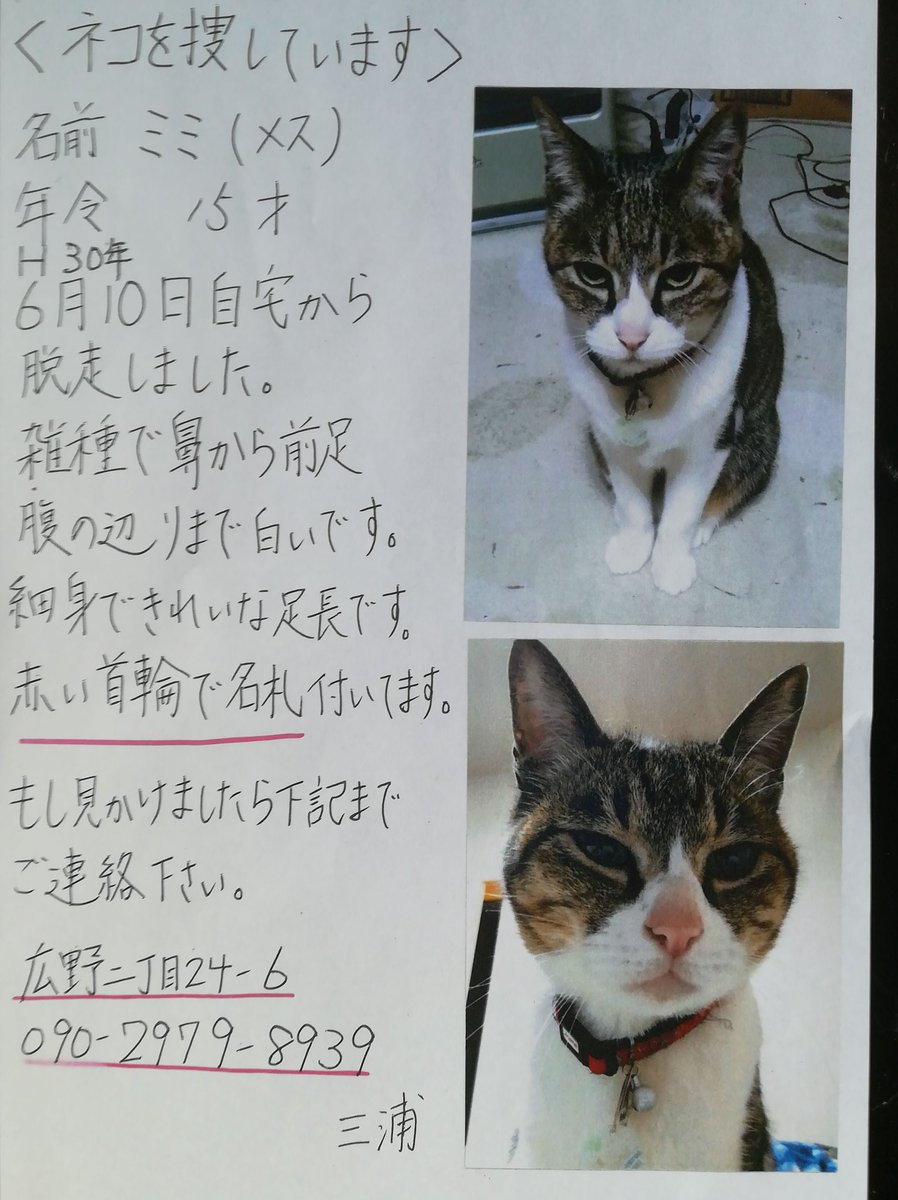 〈ネコを捜しています〉
名前 ミミ(メス)
年令 15才
H30年
6月10日自宅から
脱走しました。
雑種で鼻から前足
腹の辺りまで白いです。
細身できれいな足長です。
赤い首輪で名札付いてます。
もし見かけましたら下記まで
ご連絡下さい。
広野二丁目24-6
090-2979-8939
三浦